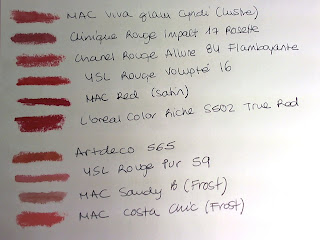 MAC Viva glam Cyndi (Lustre)
Clinique Rouge Impact 17 Rosette
Chanel Rouge Allure 84 Flamboyante
YSL Rouge Volupté 16
MAC Red (Satin)
L'oreal Color Riche S502 True Red
Artdeco 565
YSL Rouge Pur 59
MAC Saudy B (Frost)
MAC Costa Chic (Frost)